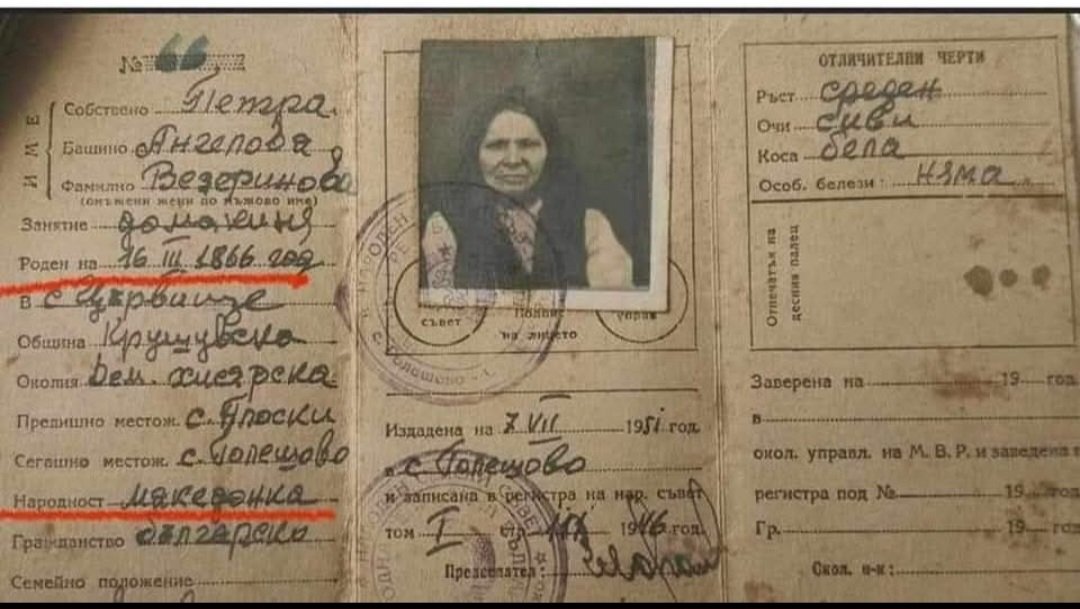 № 66
ИМЕ
Собствено Петра
Башино Ангелова
Фамилно Везеринова
(омъжени жени по мъжово име)
Занятие домакиня
Роден на 16 III 1866 год
в с. Цървище
Община Крушувска
Околия Дем. хисярска
Предишно местож. с. Плоски
Сегашно местож. с. Голешово
Народност македонка
Гражданство българско
Семейно положение
съвет
Подпис
на лицето
управ
с. Голешово
Издадена на 7 VII 1951 год.
в с Голешово
и записана в регистра на нар. съвет
том I стр. 1946 год.
Председател:
ОТЛИЧИТЕЛНИ ЧЕРТИ
Ръст среден
Очи сиви
Коса бела
Особ. белези: няма
Отпечатък на
десния палец
Заверена на 19 год.
в
окол. управл. на М. В. Р. и заведена в
регистра под № 19 год.
Гр. 19 год.
Окол. н-к: